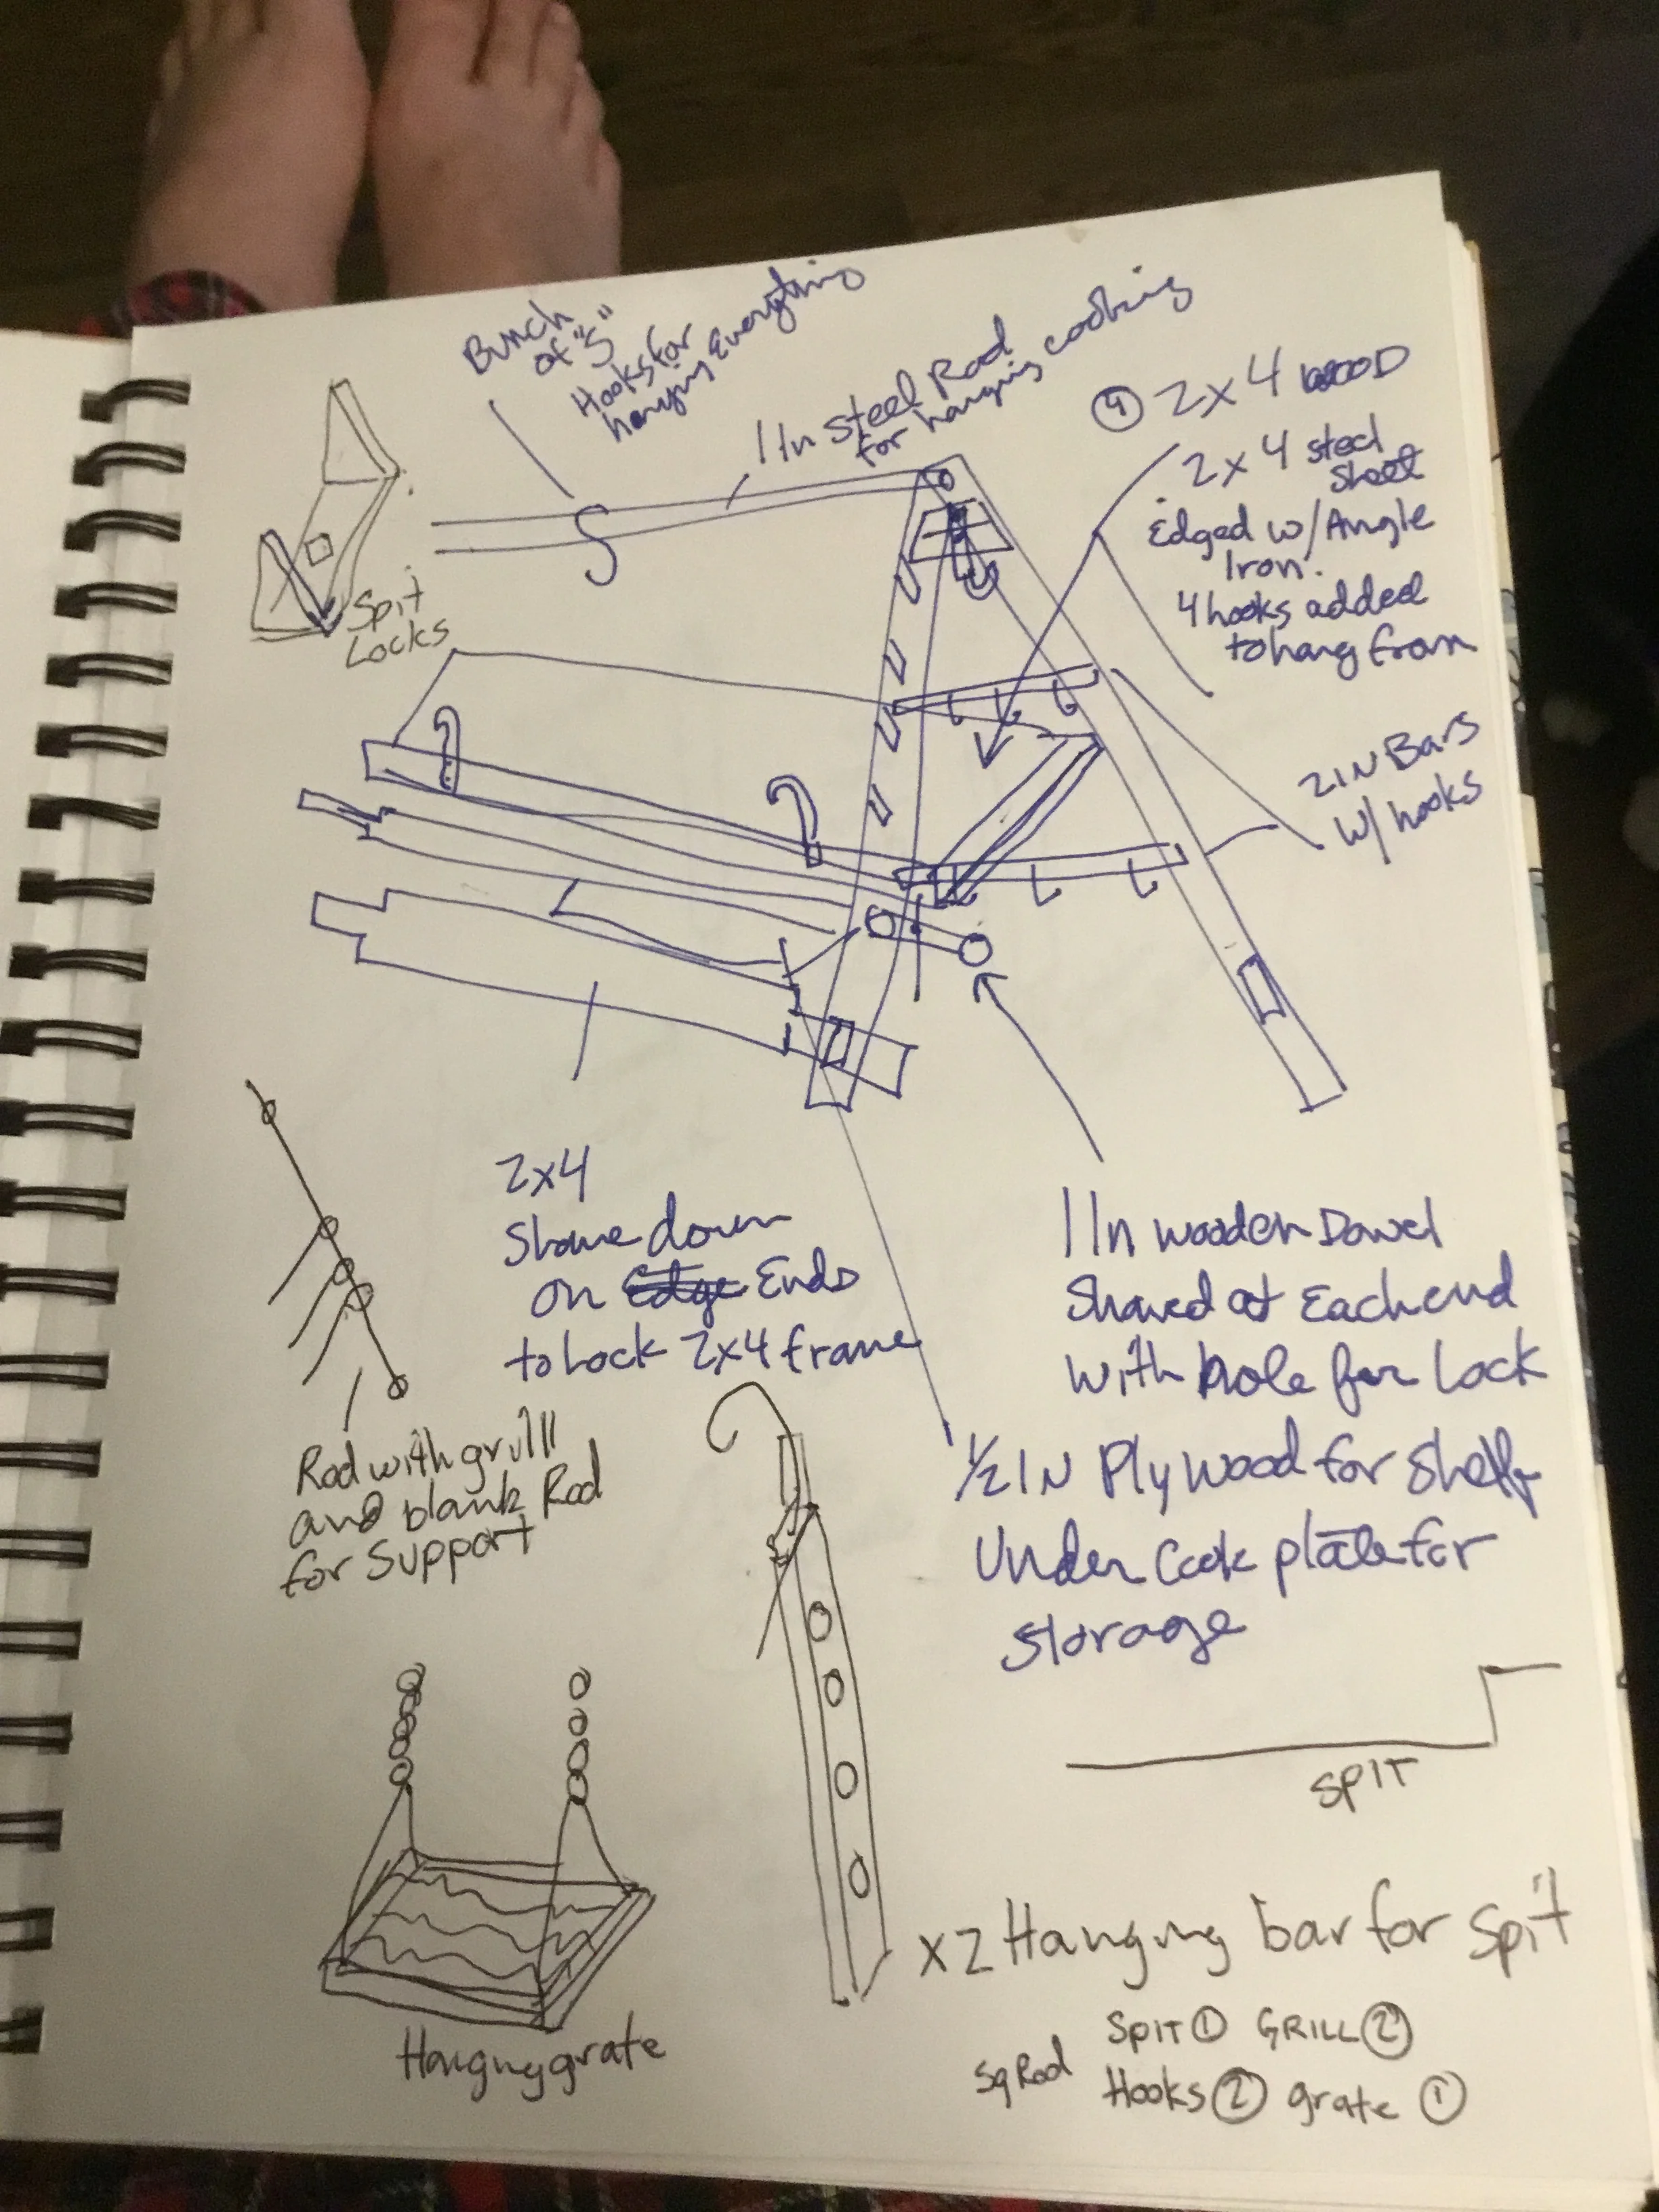 Bunch
of "S"
Hooks for
hanging Everything
1 In steel Rod
for hanging cooking
④ 2x4 WOOD
2x4 steel
sheet
Edged w/Angle
Iron.
4 hooks added
to hang from
Spit
Locks
2 IN Bars
w/ hooks
2x4
Shave down
on Edge Ends
to Lock 2x4 frame
1 In wooden Dowel
Shaved at Each end
with hole for Lock
Rod with grill
and blank Rod
for Support
1/2 IN Plywood for Shelf
Under Cook plate for
storage
SPIT
x2 Hanging bar for Spit
Hanging grate
SPIT ① GRILL ②
Sq Rod Hooks ② grate ①